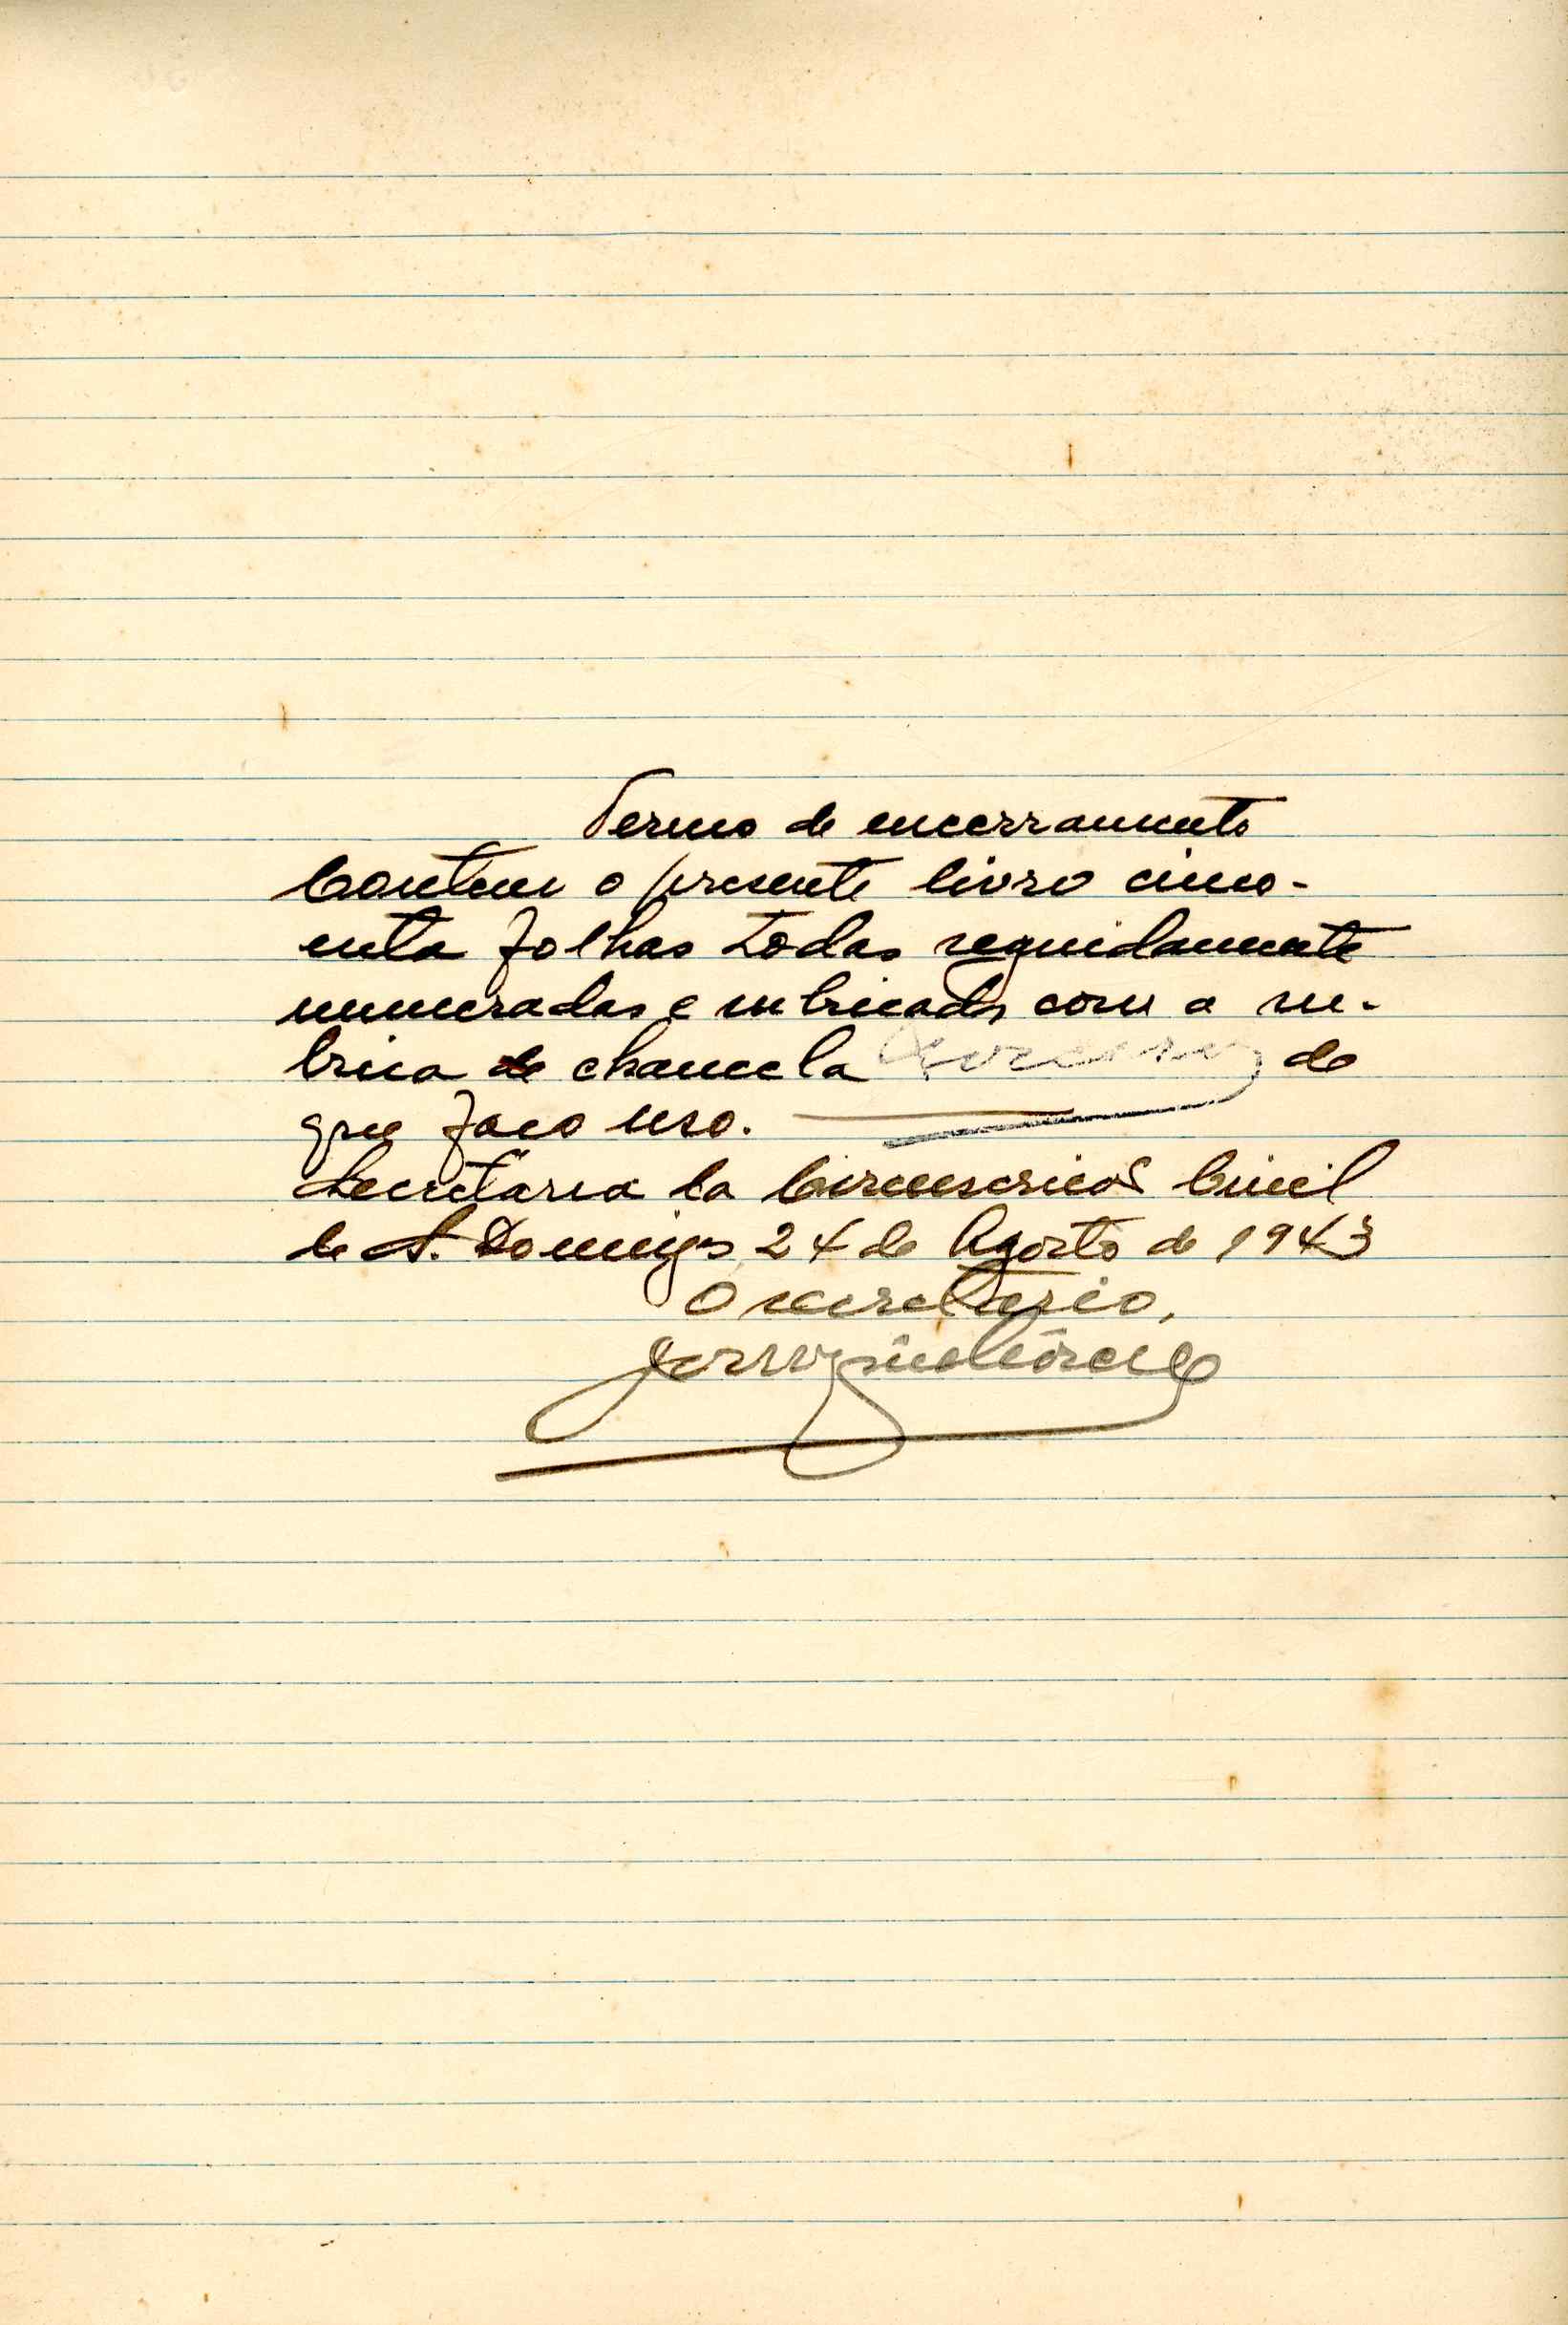 Termo de encerramento
Contem o presente livro cinco-
enta folhas todas seguidamente
numeradas e rubricadas com a ru-
brica de chancela de
que faco uso.
Secretaria da Circunscrição Civil
de S. Domingos 24 de Agosto de 1943
O secretario,